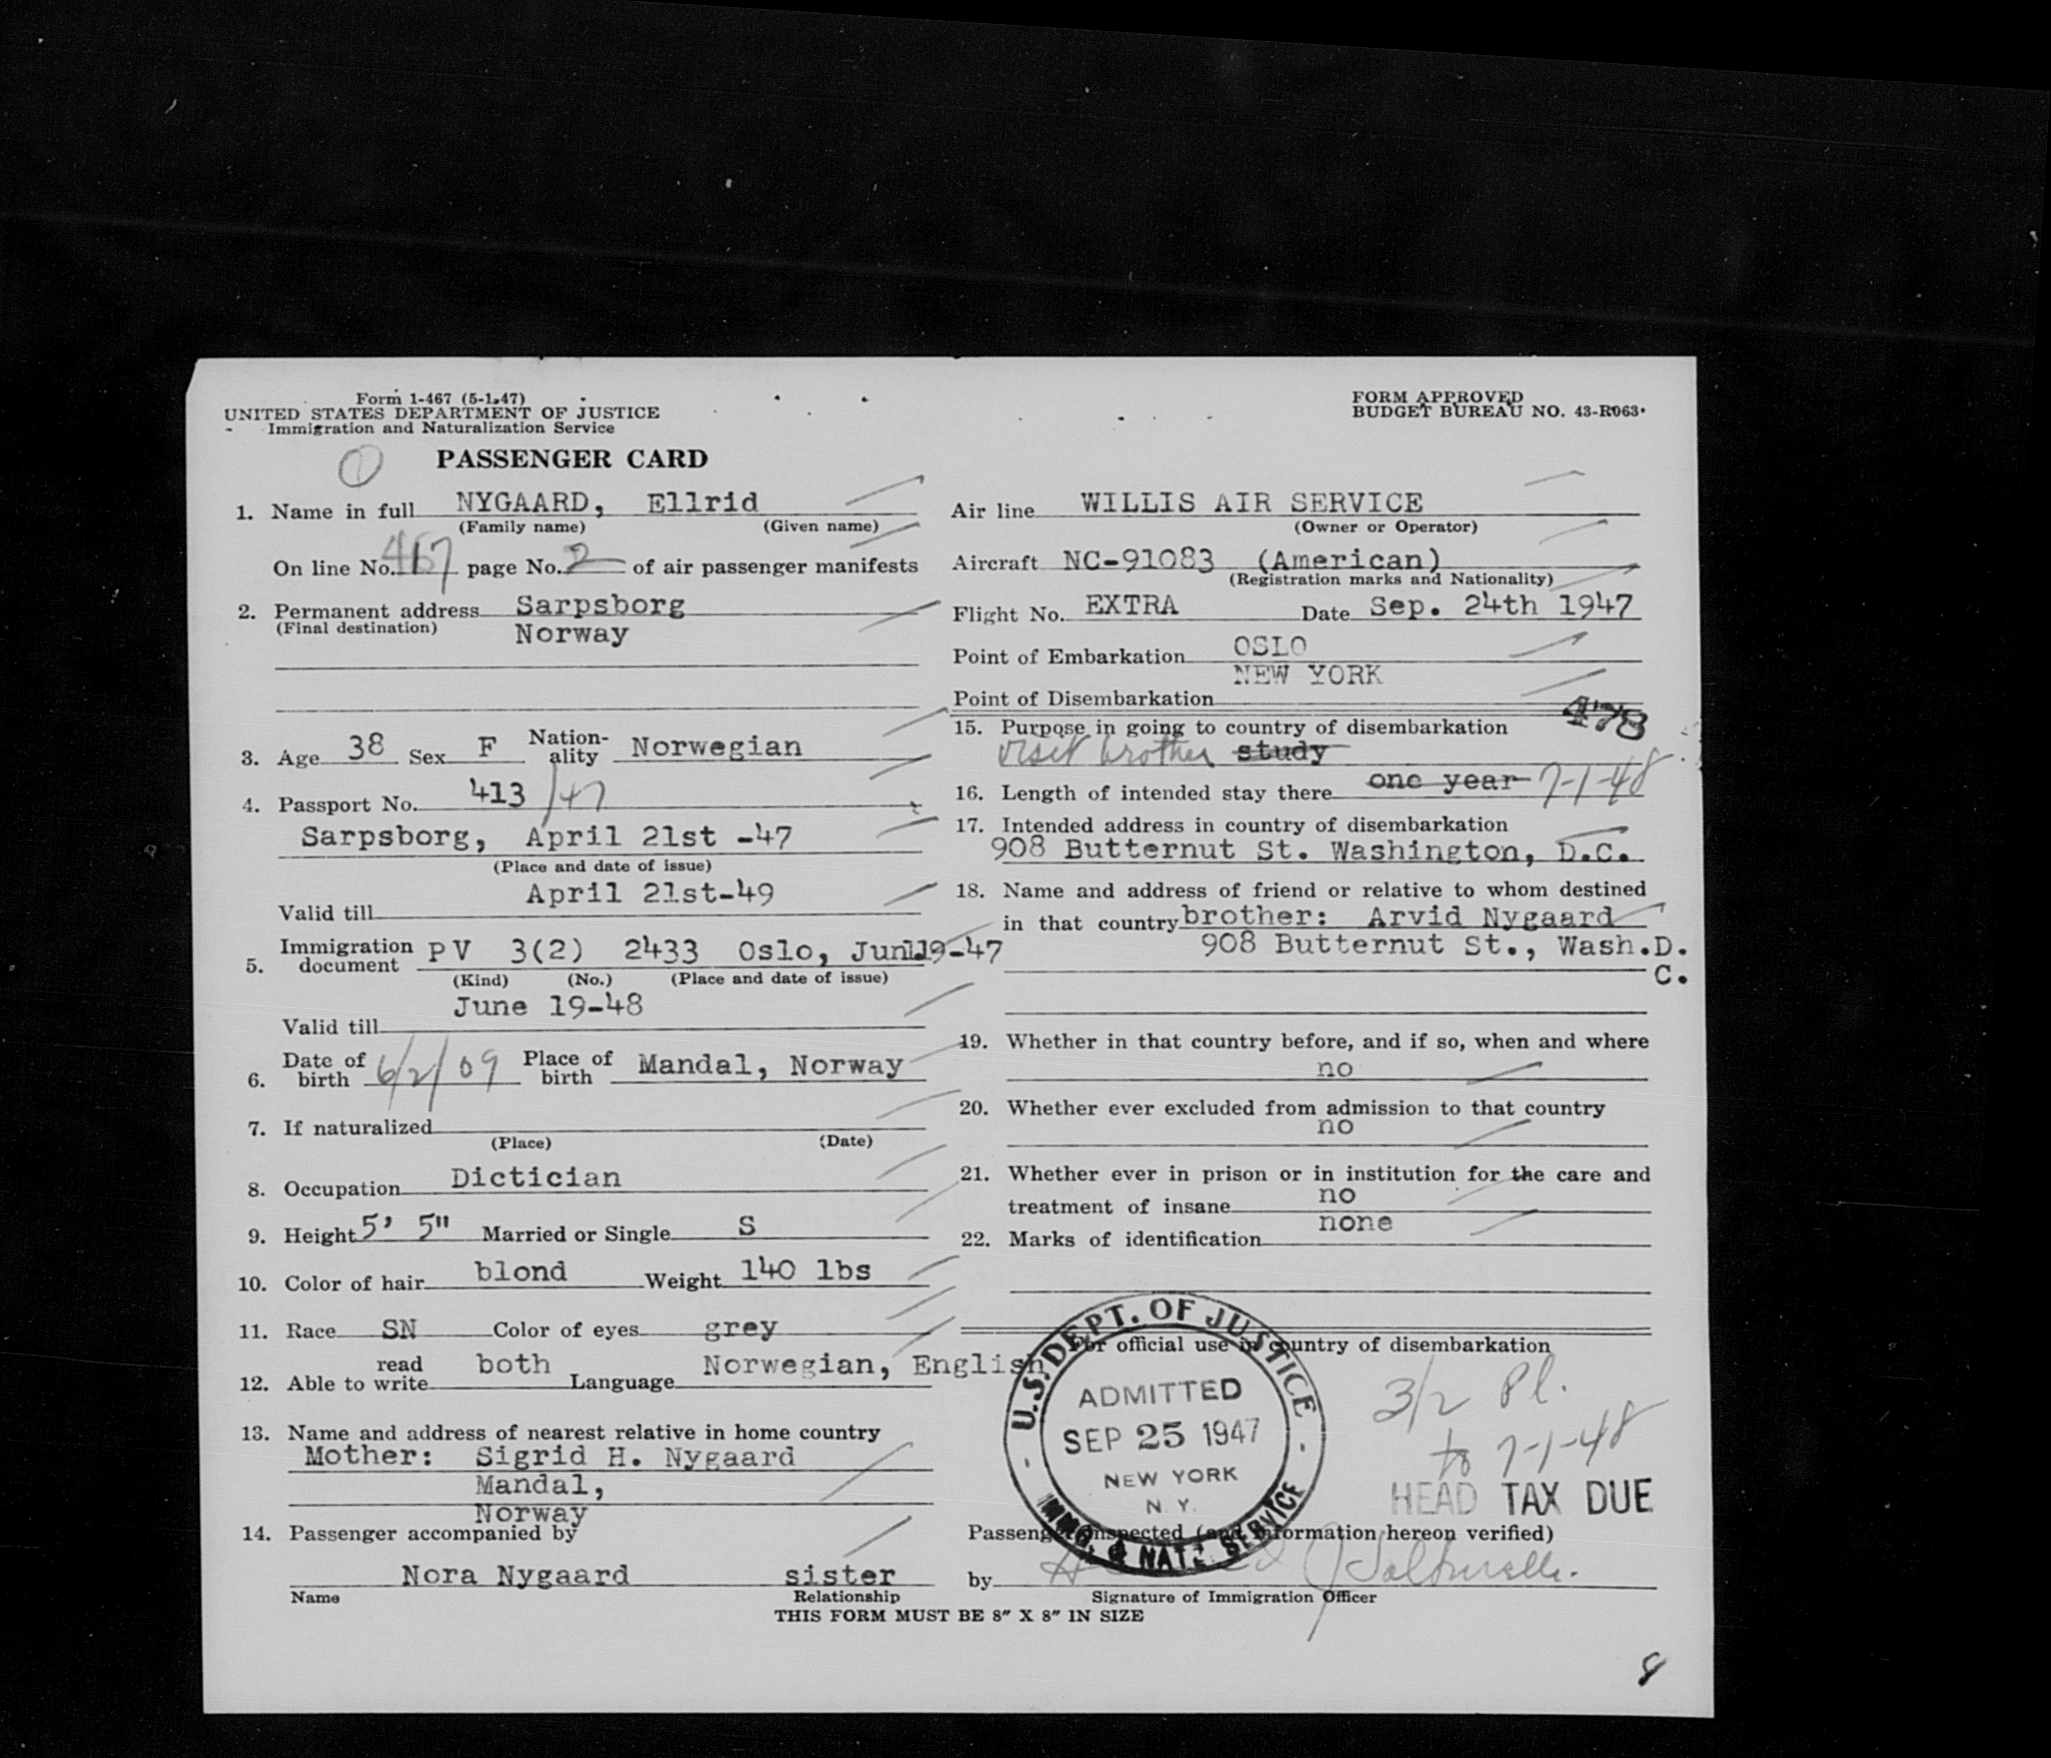 Form 1-467 (5-1-47)
UNITED STATES DEPARTMENT OF JUSTICE
Immigration and Naturalization Service
FORM APPROVED
BUDGET BUREAU NO. 43-R063
PASSENGER CARD
1. Name in full NYGAARD, Ellrid
(Family name) (Given name)
On line No. 17 page No. 2 of air passenger manifests
2. Permanent address Sarpsborg
(Final destination) Norway
3. Age 38 Sex F Nation-ality Norwegian
4. Passport No. 413/47
Sarpsborg, April 21st -47
(Place and date of issue)
April 21st-49
Valid till
5. Immigration document PV 3(2) 2433 Oslo, Jun.19-47
(Kind) (No.) (Place and date of issue)
June 19-48
Valid till
6. Date of birth 6/2/09 Place of birth Mandal, Norway
7. If naturalized
(Place) (Date)
8. Occupation Dictician
9. Height 5' 5" Married or Single S
10. Color of hair blond Weight 140 lbs
11. Race SN Color of eyes grey
12. Able to read write both Language Norwegian, English
13. Name and address of nearest relative in home country
Mother: Sigrid H. Nygaard
Mandal,
Norway
14. Passenger accompanied by
Nora Nygaard sister
Name Relationship
Air line WILLIS AIR SERVICE
(Owner or Operator)
Aircraft NC-91083 (American)
(Registration marks and Nationality)
Flight No. EXTRA Date Sep. 24th 1947
Point of Embarkation OSLO
NEW YORK
Point of Disembarkation
478
15. Purpose in going to country of disembarkation
visit brother study
16. Length of intended stay there one year 7-1-48
17. Intended address in country of disembarkation
908 Butternut St. Washington, D.C.
18. Name and address of friend or relative to whom destined
in that country brother: Arvid Nygaard
908 Butternut St., Wash.D.
C.
19. Whether in that country before, and if so, when and where
no
20. Whether ever excluded from admission to that country
no
21. Whether ever in prison or in institution for the care and
treatment of insane no
22. Marks of identification none
For official use in country of disembarkation
U.S. DEPT. OF JUSTICE
ADMITTED
SEP 25 1947
NEW YORK
N.Y.
IMM. & NATZ. SERVICE
3/2 Pl.
to 7-1-48
HEAD TAX DUE
Passenger inspected (and information hereon verified)
by
Signature of Immigration Officer
THIS FORM MUST BE 8" X 8" IN SIZE